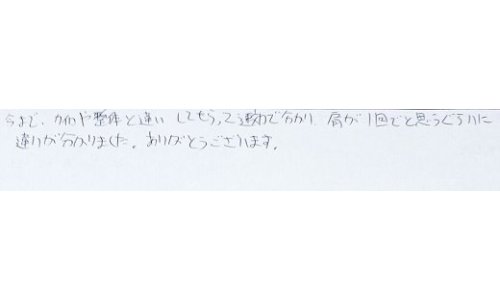 今まで、カイロや整体と違い してもらって違和で分かり 肩が1回でと思うぐらいに
違いが分かりました。ありがとうございます。